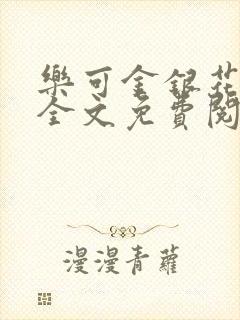 樂可金銀花
全文免費閱
漫漫青蘿